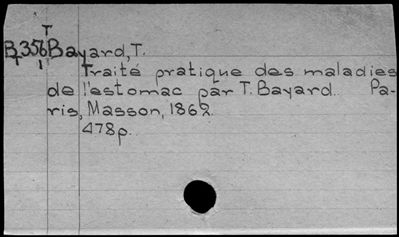 B356 Bayard, T.
Traité pratique des maladies
de l'estomac par T. Bayard. Pa-
ris, Masson, 1862.
478p.